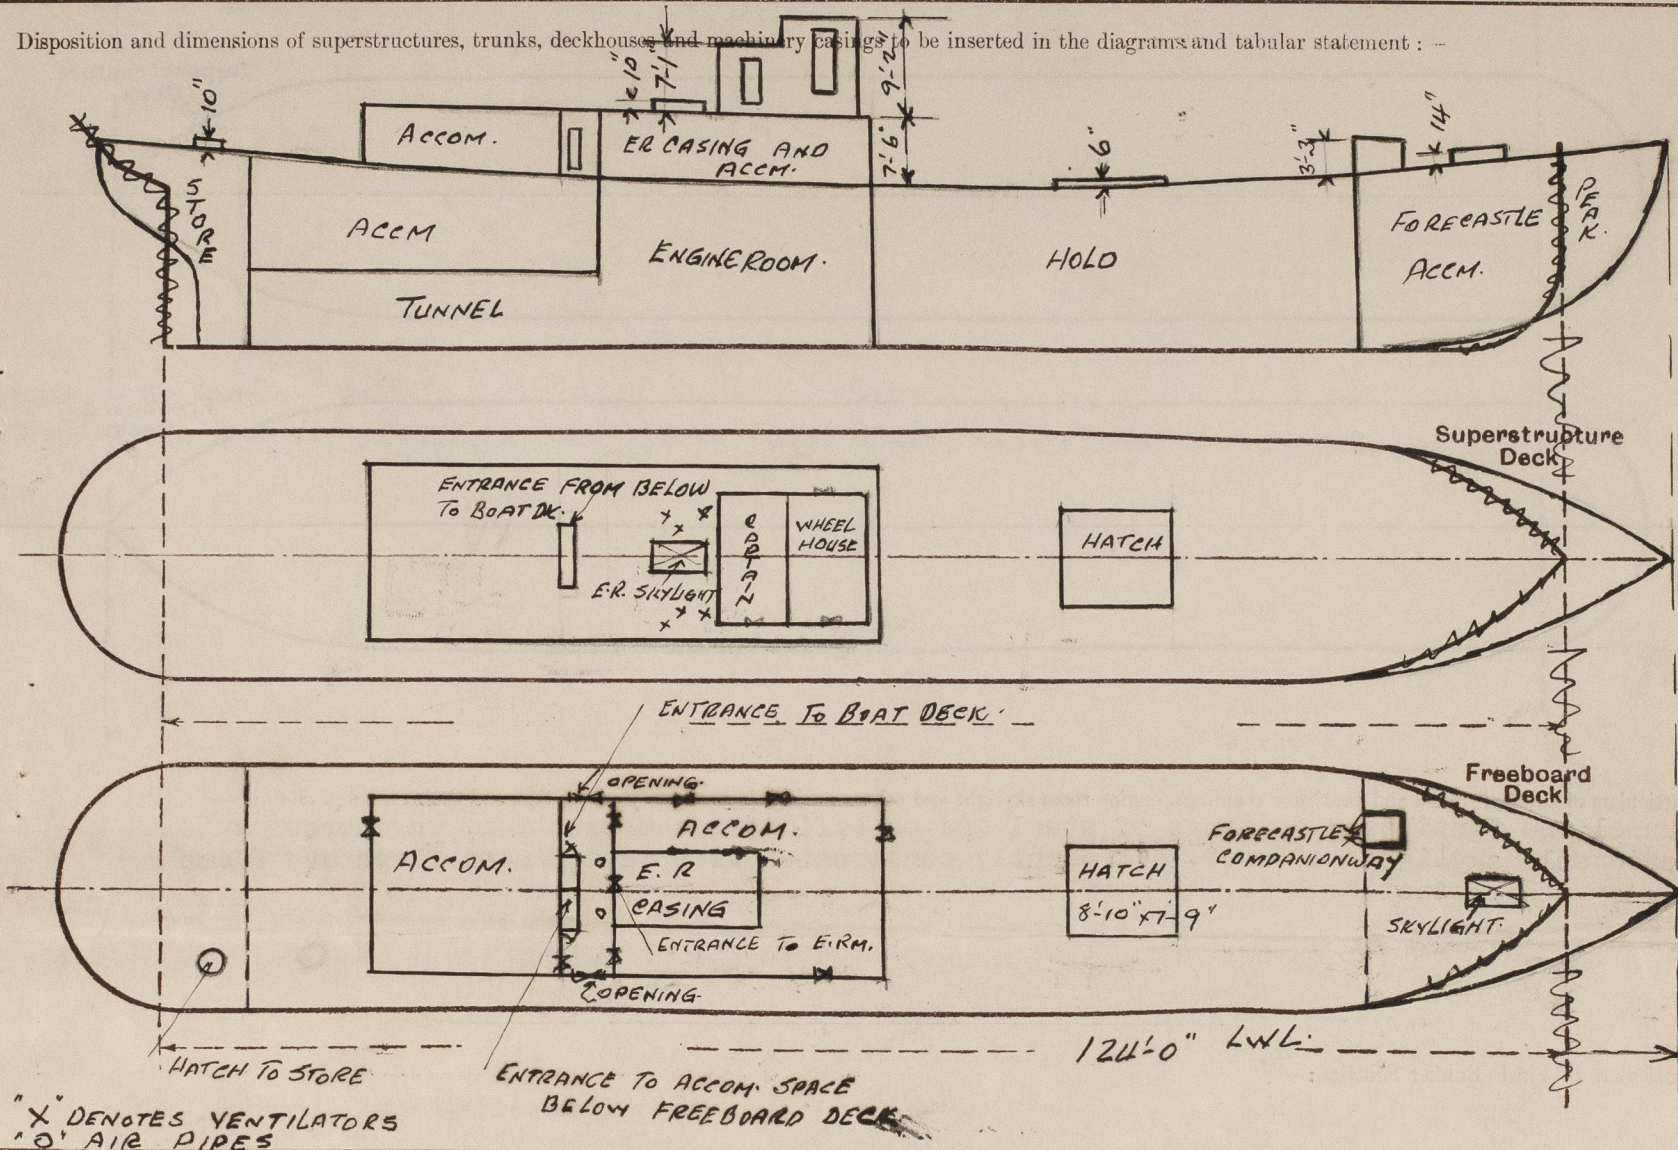 Disposition and dimensions of superstructures, trunks, deckhouses and machinery casings to be inserted in the diagrams and tabular statement : –
10"
10"
7'-1"
9'-2"
7'-6"
6"
3'-3"
14"
ACCOM.
ER CASING AND
ACCM.
STORE
ACCM
ENGINEROOM.
HOLD
FORECASTLE
ACCM.
PEAK.
TUNNEL
Superstructure
Deck
ENTRANCE FROM BELOW
TO BOAT DK.
CAPTAIN
WHEEL
HOUSE
HATCH
E.R. SKYLIGHT
ENTRANCE TO BOAT DECK.
Freeboard
Deck
OPENING.
ACCOM.
ACCOM.
E.R
CASING
ENTRANCE TO E.RM.
OPENING.
HATCH
8'-10" x 7'-9"
FORECASTLE
COMPANIONWAY
SKYLIGHT.
124'-0" LWL.
HATCH TO STORE
ENTRANCE TO ACCOM. SPACE
BELOW FREEBOARD DECK
"X" DENOTES VENTILATORS
"O" AIR PIPES